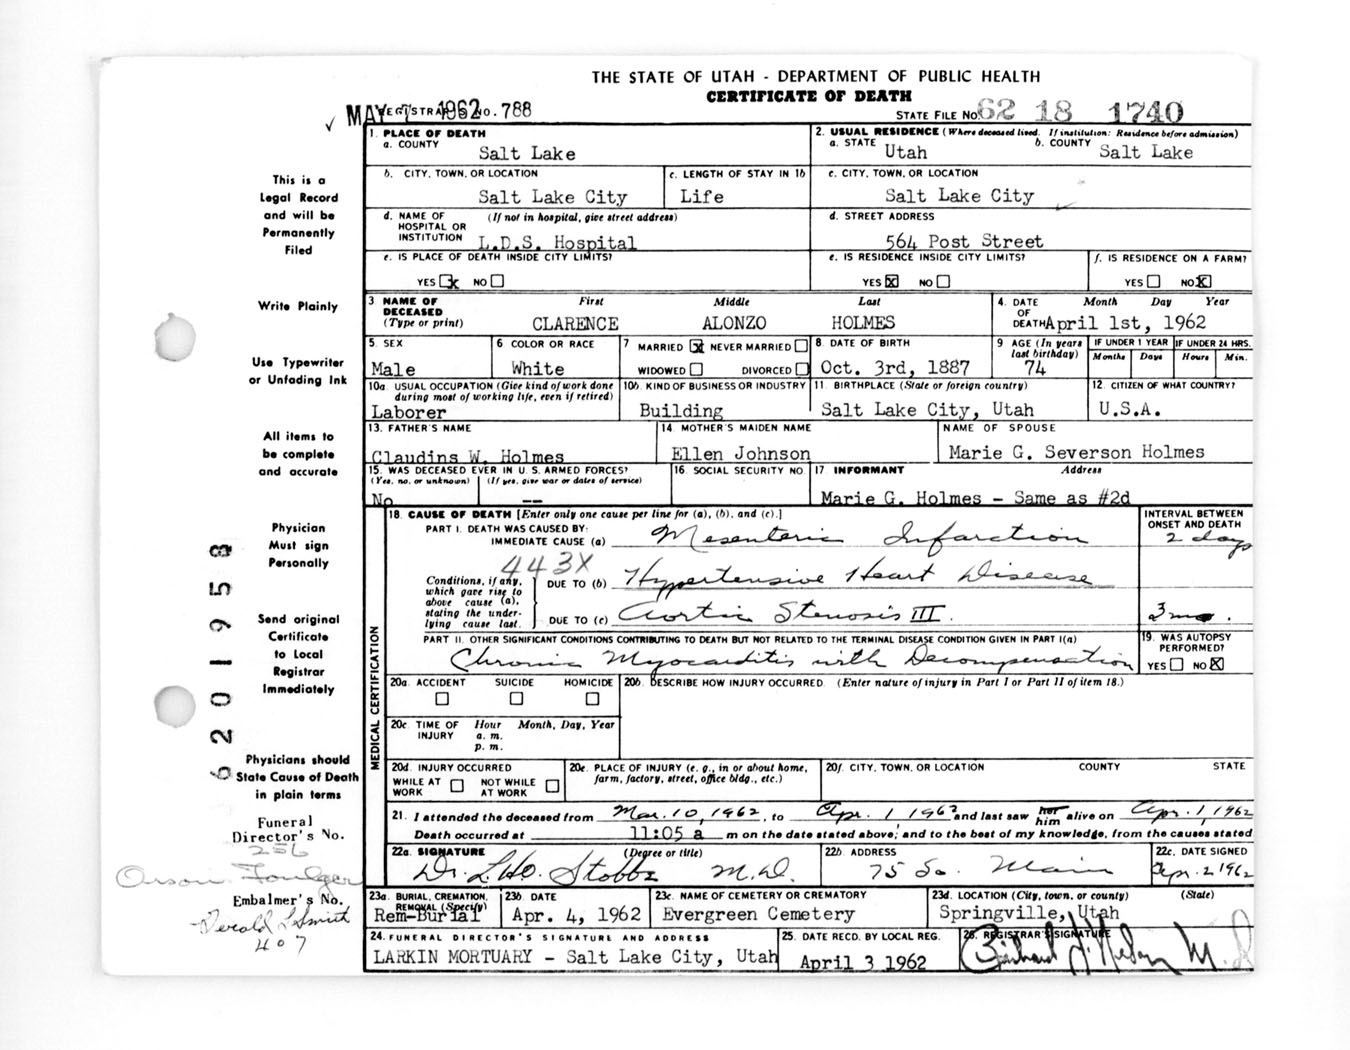 THE STATE OF UTAH - DEPARTMENT OF PUBLIC HEALTH
CERTIFICATE OF DEATH
MAY 1 1962 REGISTRAR'S NO. 788
STATE FILE NO. 62 18 1740
1. PLACE OF DEATH
a. COUNTY Salt Lake
2. USUAL RESIDENCE (Where deceased lived. If institution: Residence before admission)
a. STATE Utah b. COUNTY Salt Lake
b. CITY, TOWN, OR LOCATION Salt Lake City
c. LENGTH OF STAY IN 1b Life
c. CITY, TOWN, OR LOCATION Salt Lake City
d. NAME OF HOSPITAL OR INSTITUTION (If not in hospital, give street address) L.D.S. Hospital
d. STREET ADDRESS 564 Post Street
e. IS PLACE OF DEATH INSIDE CITY LIMITS? YES x NO
e. IS RESIDENCE INSIDE CITY LIMITS? YES X NO
f. IS RESIDENCE ON A FARM? YES NO X
3 NAME OF DECEASED (Type or print) First Middle Last
CLARENCE ALONZO HOLMES
4. DATE OF DEATH Month Day Year
April 1st, 1962
5. SEX Male
6 COLOR OR RACE White
7 MARRIED X NEVER MARRIED
WIDOWED DIVORCED
8. DATE OF BIRTH Oct. 3rd, 1887
9 AGE (In years last birthday) 74
IF UNDER 1 YEAR Months Days
IF UNDER 24 HRS. Hours Min.
10a. USUAL OCCUPATION (Give kind of work done during most of working life, even if retired) Laborer
10b. KIND OF BUSINESS OR INDUSTRY Building
11. BIRTHPLACE (State or foreign country) Salt Lake City, Utah
12. CITIZEN OF WHAT COUNTRY? U.S.A.
13. FATHER'S NAME Claudins W. Holmes
14. MOTHER'S MAIDEN NAME Ellen Johnson
NAME OF SPOUSE Marie G. Severson Holmes
15. WAS DECEASED EVER IN U. S. ARMED FORCES?
(Yes, no, or unknown) (If yes, give war or dates of service)
No --
16. SOCIAL SECURITY NO.
17 INFORMANT Address
Marie G. Holmes - Same as #2d
MEDICAL CERTIFICATION
18. CAUSE OF DEATH [Enter only one cause per line for (a), (b), and (c).]
INTERVAL BETWEEN ONSET AND DEATH
PART I. DEATH WAS CAUSED BY:
IMMEDIATE CAUSE (a) Mesenteric Infarction 2 days
443X
Conditions, if any, which gave rise to above cause (a), stating the underlying cause last.
DUE TO (b) Hypertensive Heart Disease
DUE TO (c) Aortic Stenosis III. 3 mo.
PART II. OTHER SIGNIFICANT CONDITIONS CONTRIBUTING TO DEATH BUT NOT RELATED TO THE TERMINAL DISEASE CONDITION GIVEN IN PART I(a)
Chronic Myocarditis with Decompensation
19. WAS AUTOPSY PERFORMED? YES NO X
20a. ACCIDENT SUICIDE HOMICIDE
20b. DESCRIBE HOW INJURY OCCURRED. (Enter nature of injury in Part I or Part II of item 18.)
20c. TIME OF INJURY Hour a. m. p. m. Month, Day, Year
20d. INJURY OCCURRED
WHILE AT WORK NOT WHILE AT WORK
20e. PLACE OF INJURY (e. g., in or about home, farm, factory, street, office bldg., etc.)
20f. CITY, TOWN, OR LOCATION COUNTY STATE
21. I attended the deceased from Mar. 10, 1962, to Apr. 1 1962 and last saw her him alive on Apr. 1, 1962
Death occurred at 11:05 a m on the date stated above; and to the best of my knowledge, from the causes stated
22a. SIGNATURE (Degree or title) M.D.
22b. ADDRESS 75 So. Main
22c. DATE SIGNED Apr. 2 1962
23a. BURIAL, CREMATION, REMOVAL (Specify) Rem-Burial
23b. DATE Apr. 4, 1962
23c. NAME OF CEMETERY OR CREMATORY Evergreen Cemetery
23d. LOCATION (City, town, or county) (State)
Springville, Utah
24. FUNERAL DIRECTOR'S SIGNATURE AND ADDRESS
LARKIN MORTUARY - Salt Lake City, Utah
25. DATE RECD. BY LOCAL REG. April 3 1962
26. REGISTRAR'S SIGNATURE
This is a
Legal Record
and will be
Permanently
Filed
Write Plainly
Use Typewriter
or Unfading Ink
All items to
be complete
and accurate
Physician
Must sign
Personally
Send original
Certificate
to Local
Registrar
Immediately
Physicians should
State Cause of Death
in plain terms
Funeral
Director's No.
256
Embalmer's No.
407
6201953